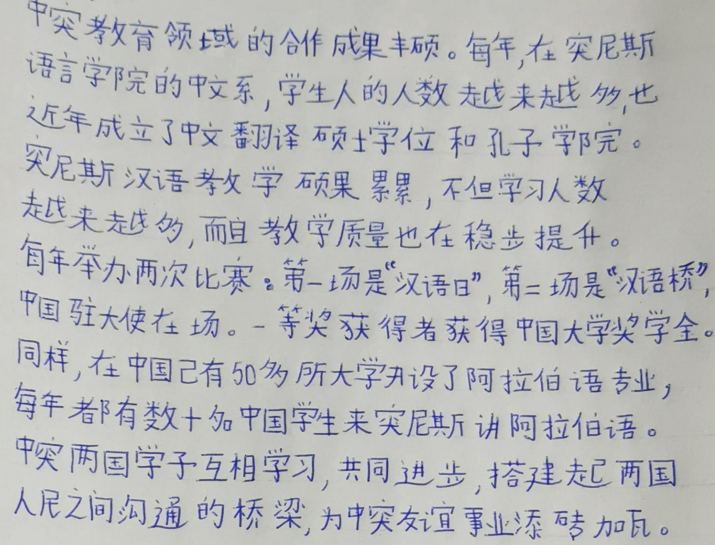 中突教育领域的合作成果丰硕。每年,在突尼斯
语言学院的中文系,学生人的人数越来越多,也
近年成立了中文翻译硕士学位和孔子学院。
突尼斯汉语教学硕果累累,不但学习人数
越来越多,而且教学质量也在稳步提升。
每年举办两次比赛:第一场是“汉语日”,第二场是“汉语桥”,
中国驻大使在场。一等奖获得者获得中国大学奖学金。
同样,在中国已有50多所大学开设了阿拉伯语专业,
每年都有数十名中国学生来突尼斯讲阿拉伯语。
中突两国学子互相学习,共同进步,搭建起两国
人民之间沟通的桥梁,为中突友谊事业添砖加瓦。